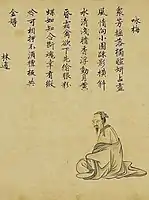 詠梅
衆芳搖落獨暄妍占盡
風情向小園疎影橫斜
水清淺暗香浮動月黃
昏霜禽欲下先偷眼粉
蝶如知合斷魂幸有微
吟可相狎不須檀板共
金罇
林逋